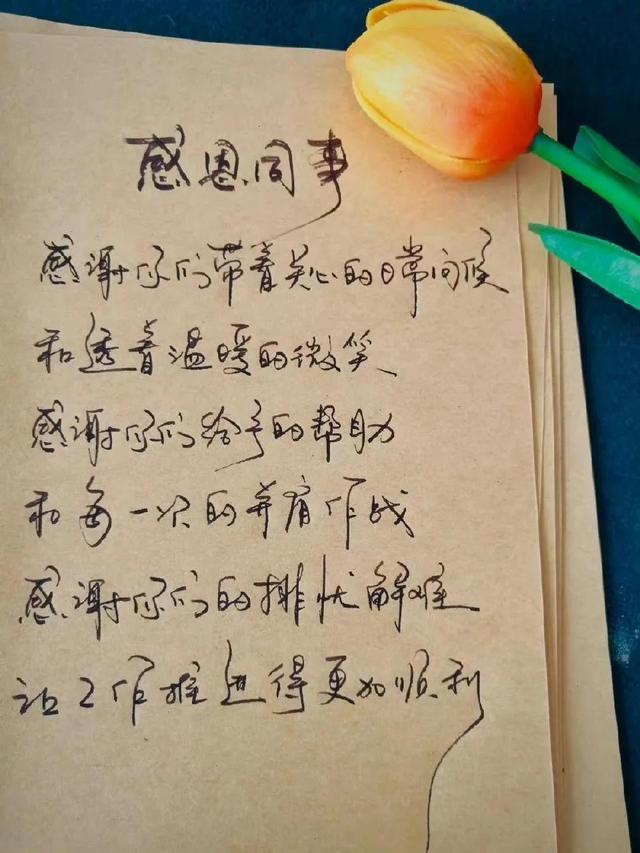 感恩同事
感谢你们带着关心的日常问候
和透着温暖的微笑
感谢你们给予的帮助
和每一次的并肩作战
感谢你们的排忧解难
让工作推进得更加顺利